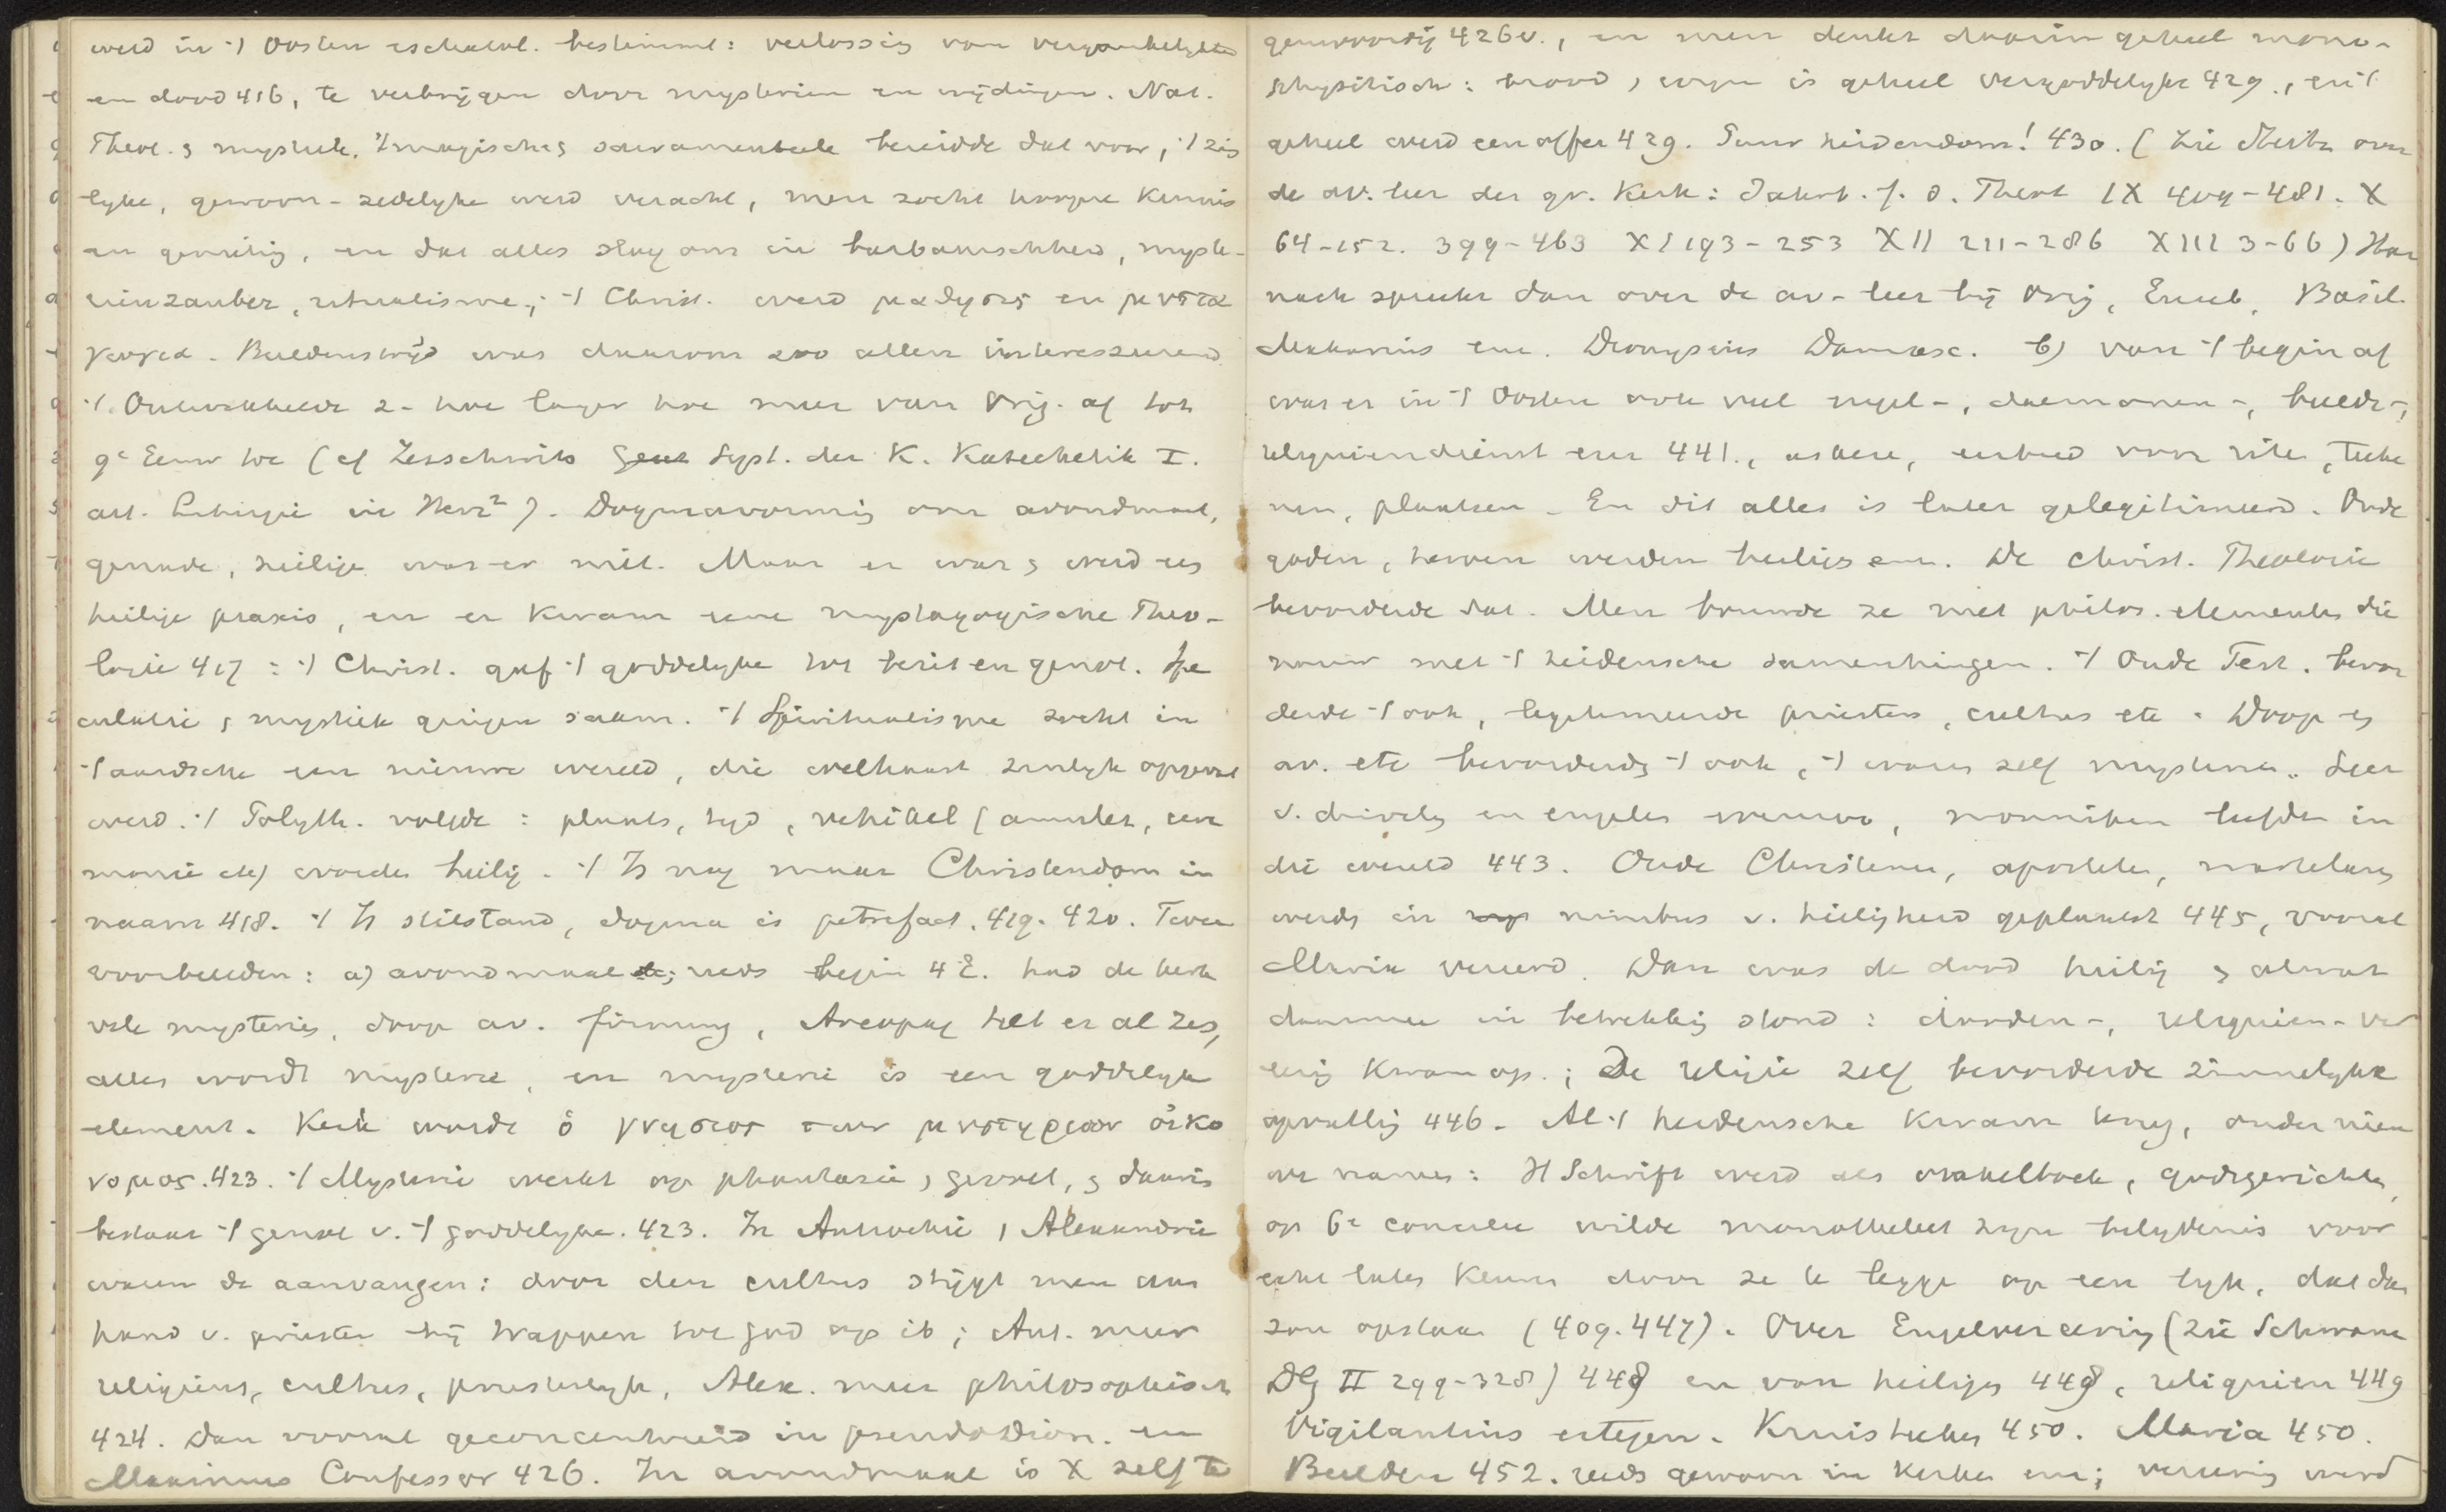 werd in 't Oosten eschatol. bestemd: verlossing van vergankelykheid
en dood 416, te verkrijgen door mysterien en wijdingen. Nat.
Theol. & mystiek, 't magische & sacramenteele bereidde dat voor, 't zin
lyke, gewoon-zedelyke werd veracht, men zocht hoogere kennis
en genieting, en dat alles sloeg om in barbaarschheid, myste-
rienzauber, ritualisme; 't Christ. werd μαθησις en μυστα
γωγια. Beeldenstrijd was daarom zoo allen interesseerend
't. Ontwikkelde z- hoe langer hoe meer van Orig. af tot
9e Eeuw toe (cf Zesschwitz Syst. der K. Katechetik I.
art. Liturgie in Herz²). Dogmavorming over avondmaal,
genade, heilige was er niet. Maar er was & werd een
heilige praxis, en er kwam eene mystagogische Theo-
logie 417: 't Christ. gaf 't goddelyke tot bezit en genot. Spe
culatie & mystiek gingen saam. 't Spiritualisme zocht in
't aardsche een nieuwe wereld, die weldra zinlyk opgevat
werd. 't Polyth. volgde: plaats, tyd, vehikel (amulet, cere
monie etc) worden heilig. 't Is nog maar Christendom in
naam 418. 't Is stilstand, dogma is petrefact. 419. 420. Twee
voorbeelden: a) avondmaal; reeds begin 4e E. had de kerk
vele mysterien, doop av. firmung, Areopag telt er al zes,
alles wordt mysterie, en mysterie is een goddelyk
element. Kerk wordt ὁ γνησιος των μυστηριων οἰκο
νομος. 423. 't Mysterie werkt op phantasie, gevoel, & daarin
bestaat 't genot v. 't goddelyke. 423. In Antiochie, Alexandrie
waren de aanvangen: door den cultus stijgt men aan
hand v. priester bij trappen tot God op ib; Ant. meer
religieus, cultus, priesterlyk, Alex. meer philosophisch
424. Dan vooral geconcentreerd in pseudoDion. en
Maximus Confessor 426. In avondmaal is X zelf te
genwoordig 426v., en men denkt daarin geheel mono-
physitisch: brood, wijn is geheel vergoddelykt 429., en 't
geheel werd een offer 429. Puur heidendom! 430. (Zie Steitz over
de av. leer der gr. Kerk: Jahrb. f. d. Theol IX 409-481. X
64-152. 399-463 XI 193-253 XII 211-286 XIII 3-66) Har
nack spreekt dan over de av-leer bij Orig, Euseb, Basil.
Makarius enz. Dionysius Damasc. b) van 't begin af
was er in 't Oosten ook veel engel-, daemonen-, beeld-,
reliquiendienst enz 441., askese, eerbied voor rite, teeke
nen, plaatsen. En dit alles is later gelegitimeerd. Oude
goden, heroen werden heiligen enz. De christ. Theologie
bevorderde dat. Men bouwde ze met philos. elementen die
nauw met 't heidensche samenhingen. 't Oude Test. bevor
derde 't ook, legitimeerde priesters, cultus etc. Doop en
av. etc bevorderden 't ook, 't waren zelf mysterien. Leer
v. duivelen en engelen wemelde, monniken leefden in
die wereld 443. Oude Christenen, apostelen, martelaren
werden in nimbus v. heiligheid geplaatst 445, vooral
Maria vereerd. Dan was de dood heilig & alwat
daarmee in betrekking stond: dooden-, reliquien-ver
eering kwam op.; De religie zelf bevorderde zinnelyke
opvatting 446. Al 't heidensche kwam terug, onder nieu
we namen: H Schrift werd als orakelboek, godsgerichten,
op 6e concilie wilde monotheleet zyn belydenis voor
echt laten keuren door ze te leggen op een lyk, dat dan
zou opstaan (409. 447). Over Engelvereering (zie Schwane
DG II 299-328) 448 en van heiligen 448, reliquien 449
Vigilantius ertegen. Kruisteeken 450. Maria 450.
Beelden 452. reeds gewoon in kerken enz; vereering werd